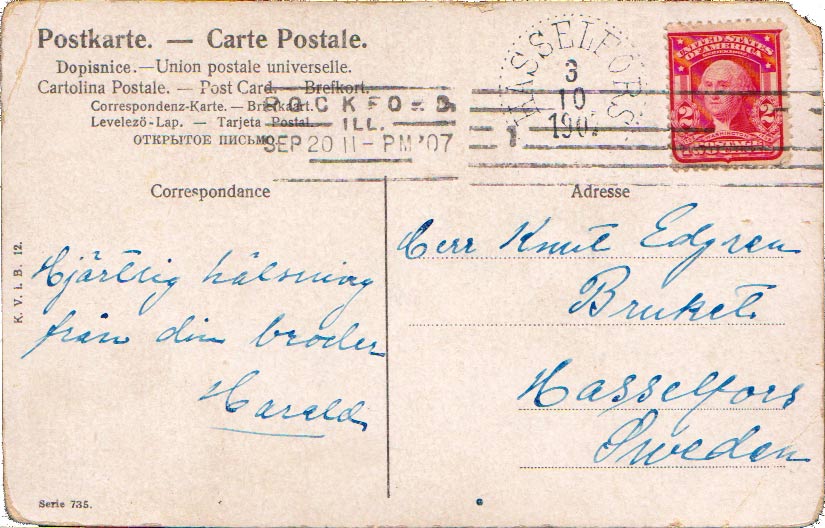 Postkarte. — Carte Postale.
Dopisnice. — Union postale universelle.
Cartolina Postale. — Post Card. — Brefkort.
Correspondenz-Karte. — Briefkaart.
Levelezö-Lap. — Tarjeta Postal.
ОТКРЫТОЕ ПИСЬМО
ROCKFORD
ILL.
SEP 20 11-PM '07
1
HASSELFORS
3
10
1907
UNITED STATES
OF AMERICA
2 2
Correspondance
Adresse
Hjärtlig hälsning
från din broder
Harald
Herr Knut Edgren
Bruket
Hasselfors
Sweden
K. V. i. B. 12.
Serie 735.